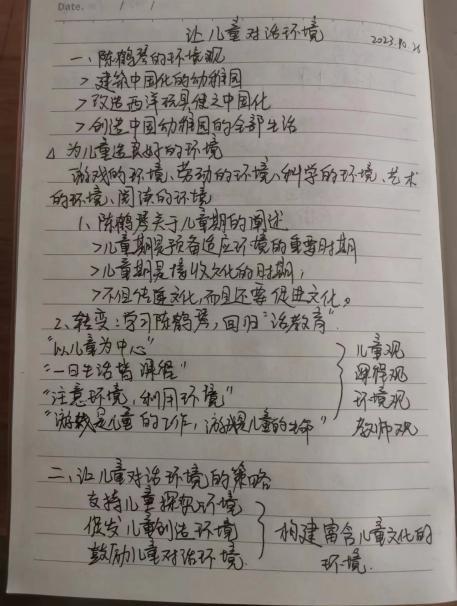 Date.    /    /
让儿童对话环境
2023.10.26
一、陈鹤琴的环境观
> 建筑中国化的幼稚园
> 改造西洋玩具使之中国化
> 创造中国幼稚园的全部生活
△ 为儿童造良好的环境
游戏的环境、劳动的环境、科学的环境、艺术
的环境、阅读的环境
1、陈鹤琴关于儿童期的阐述
>儿童期是预备适应环境的重要时期
>儿童期是接收文化的时期；
>不但传递文化，而且还要促进文化。
2、转变：学习陈鹤琴，回归“活教育”.
“以儿童为中心” 儿童观
“一日生活皆课程” 课程观
“注意环境，利用环境” 环境观
“游戏是儿童的工作，游戏是儿童的生命” 教师观
二、让儿童对话环境的策略
支持儿童探索环境
促发儿童创造环境 构建富含儿童文化的
鼓励儿童对话环境 环境.